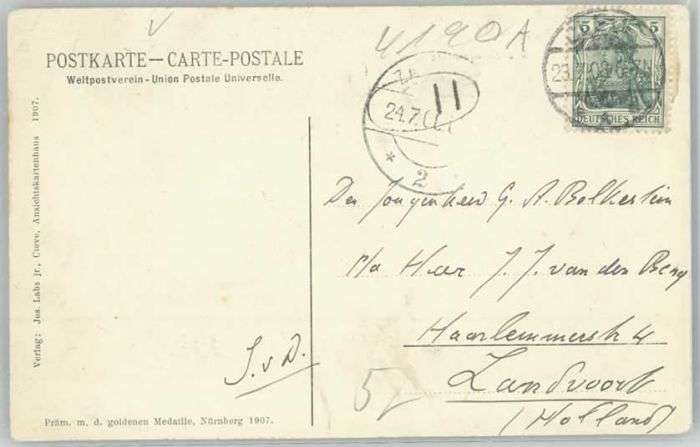 4190A
POSTKARTE — CARTE-POSTALE
Weltpostverein - Union Postale Universelle.
5 5
DEUTSCHES REICH
23.
24.7.
11
2
Den Jongenheer G. A. Bolkestein
p/a Heer J. J. van den Berg
Haarlemmerstr 4
Zandvoort
(Holland)
J. v D.
5
Verlag: Jos. Labs jr., Cleve, Ansichtskartenhaus 1907.
Präm. m. d. goldenen Medaille, Nürnberg 1907.